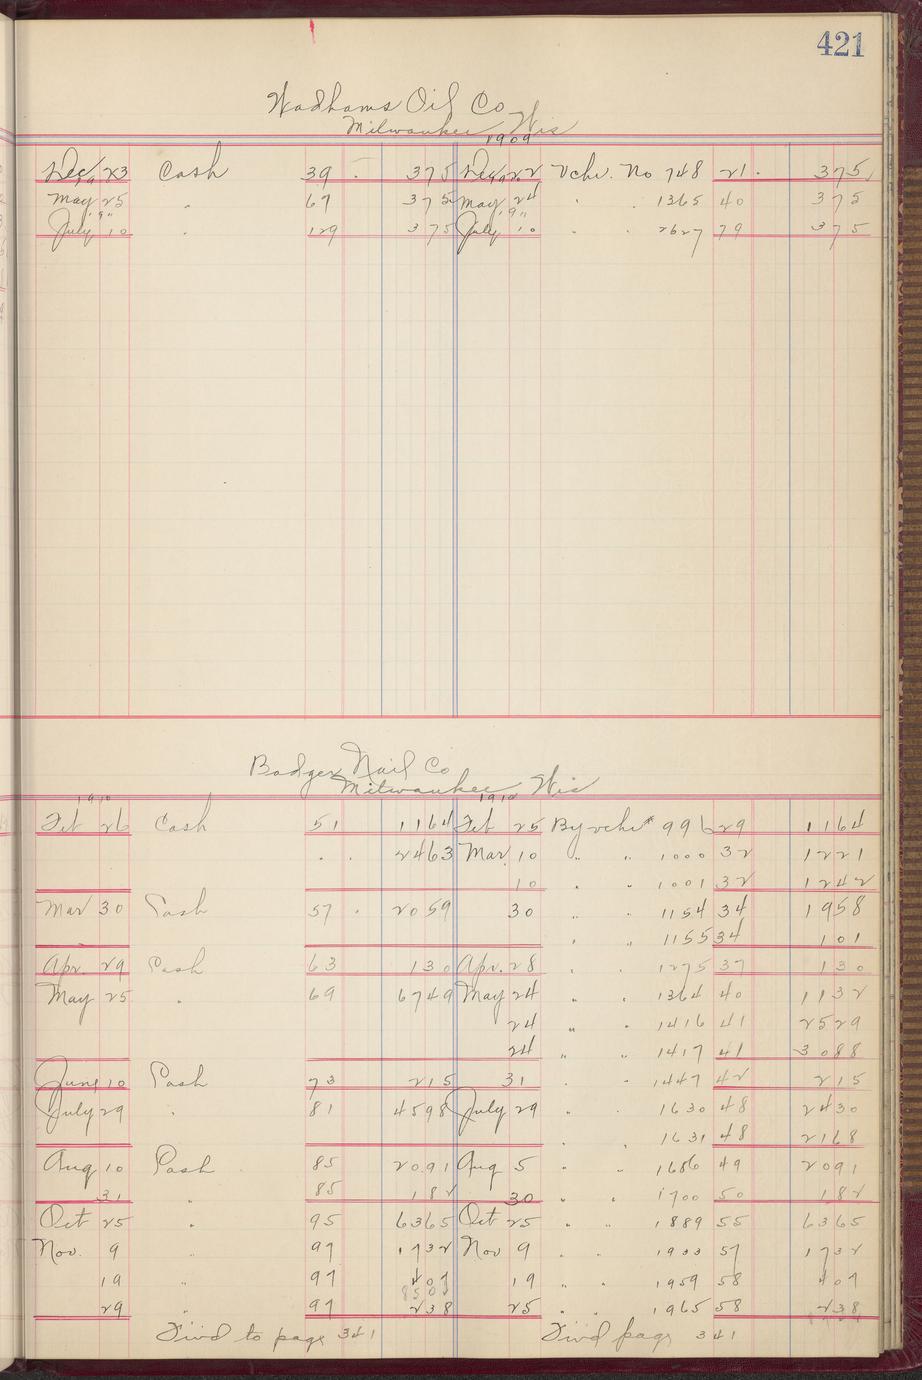 421
Wadhams Oil Co
Milwaukee Wis
1909
Dec 23 Cash 39 375 Dec 22 Vchr. No 748 21 375
May 25 " 67 375 May 24 " 1365 40 375
July 10 " 129 375 July 10 " " 2627 79 375
Badger Nail Co
Milwaukee Wis
1910 1910
Feb 26 Cash 51 1164 Feb 25 By vchr # 996 29 1164
" " 2463 Mar. 10 " " 1000 32 1221
10 " " 1001 32 1242
Mar 30 Cash 57 " 2059 30 " " 1154 34 1958
" " 1155 34 101
Apr. 29 Cash 63 130 Apr. 28 " " 1275 37 130
May 25 " 69 6749 May 24 " " 1364 40 1132
24 " " 1416 41 2529
24 " " 1417 41 3088
June 10 Cash 73 215 31 " " 1447 42 215
July 29 " 81 4598 July 29 " " 1630 48 2430
" " 1631 48 2168
Aug 10 Cash 85 2091 Aug 5 " " 1686 49 2091
31 " 85 182 30 " " 1700 50 182
Oct 25 " 95 6365 Oct 25 " " 1889 55 6365
Nov. 9 " 97 1732 Nov 9 " " 1933 57 1732
19 " 97 407 19 " " 1959 58 407
29 " 97 238 25 " " 1965 58 238
Fwd to page 341 Fwd page 341